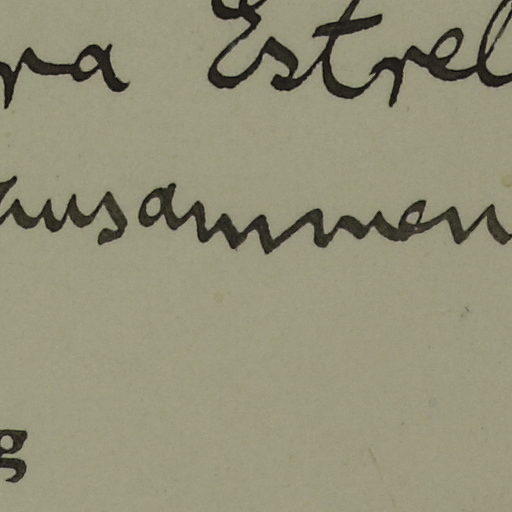 ra Estrel
ausammen
g